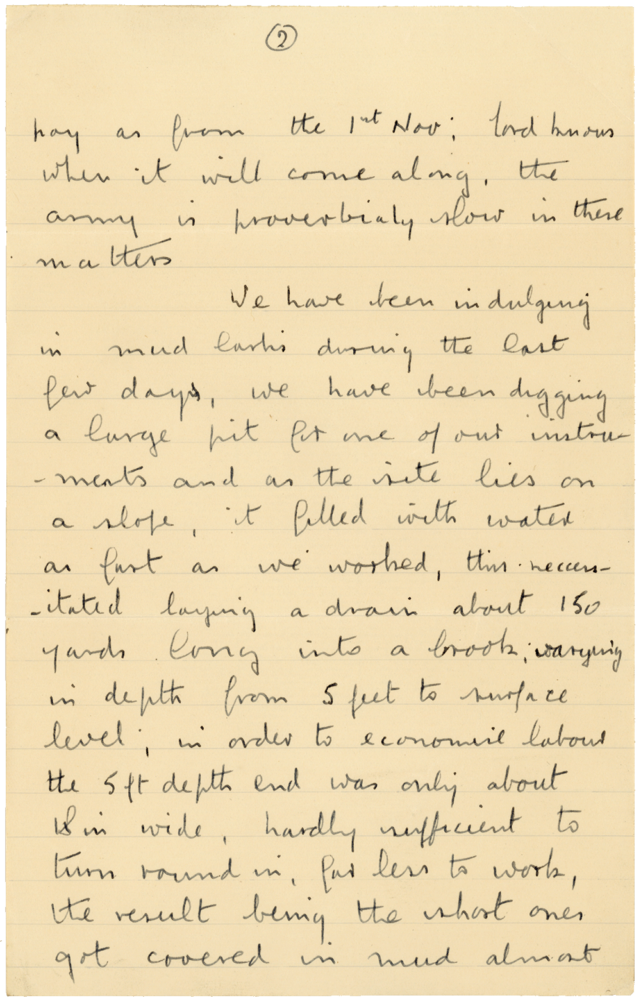 2
pay as from the 1st Nov; lord knows
when it will come along, the
army is proverbialy slow in these
matters
We have been indulging
in mud baths during the last
few days, we have been digging
a large pit for one of our instru-
-ments and as the site lies on
a slope, it filled with water
as fast as we worked, this necess-
-itated laying a drain about 150
yards long into a brook; varying
in depth from 5 feet to surface
level; in order to economise labour
the 5ft depth end was only about
18in wide, hardly sufficient to
turn round in, far less to work,
the result being the short ones
got covered in mud almost